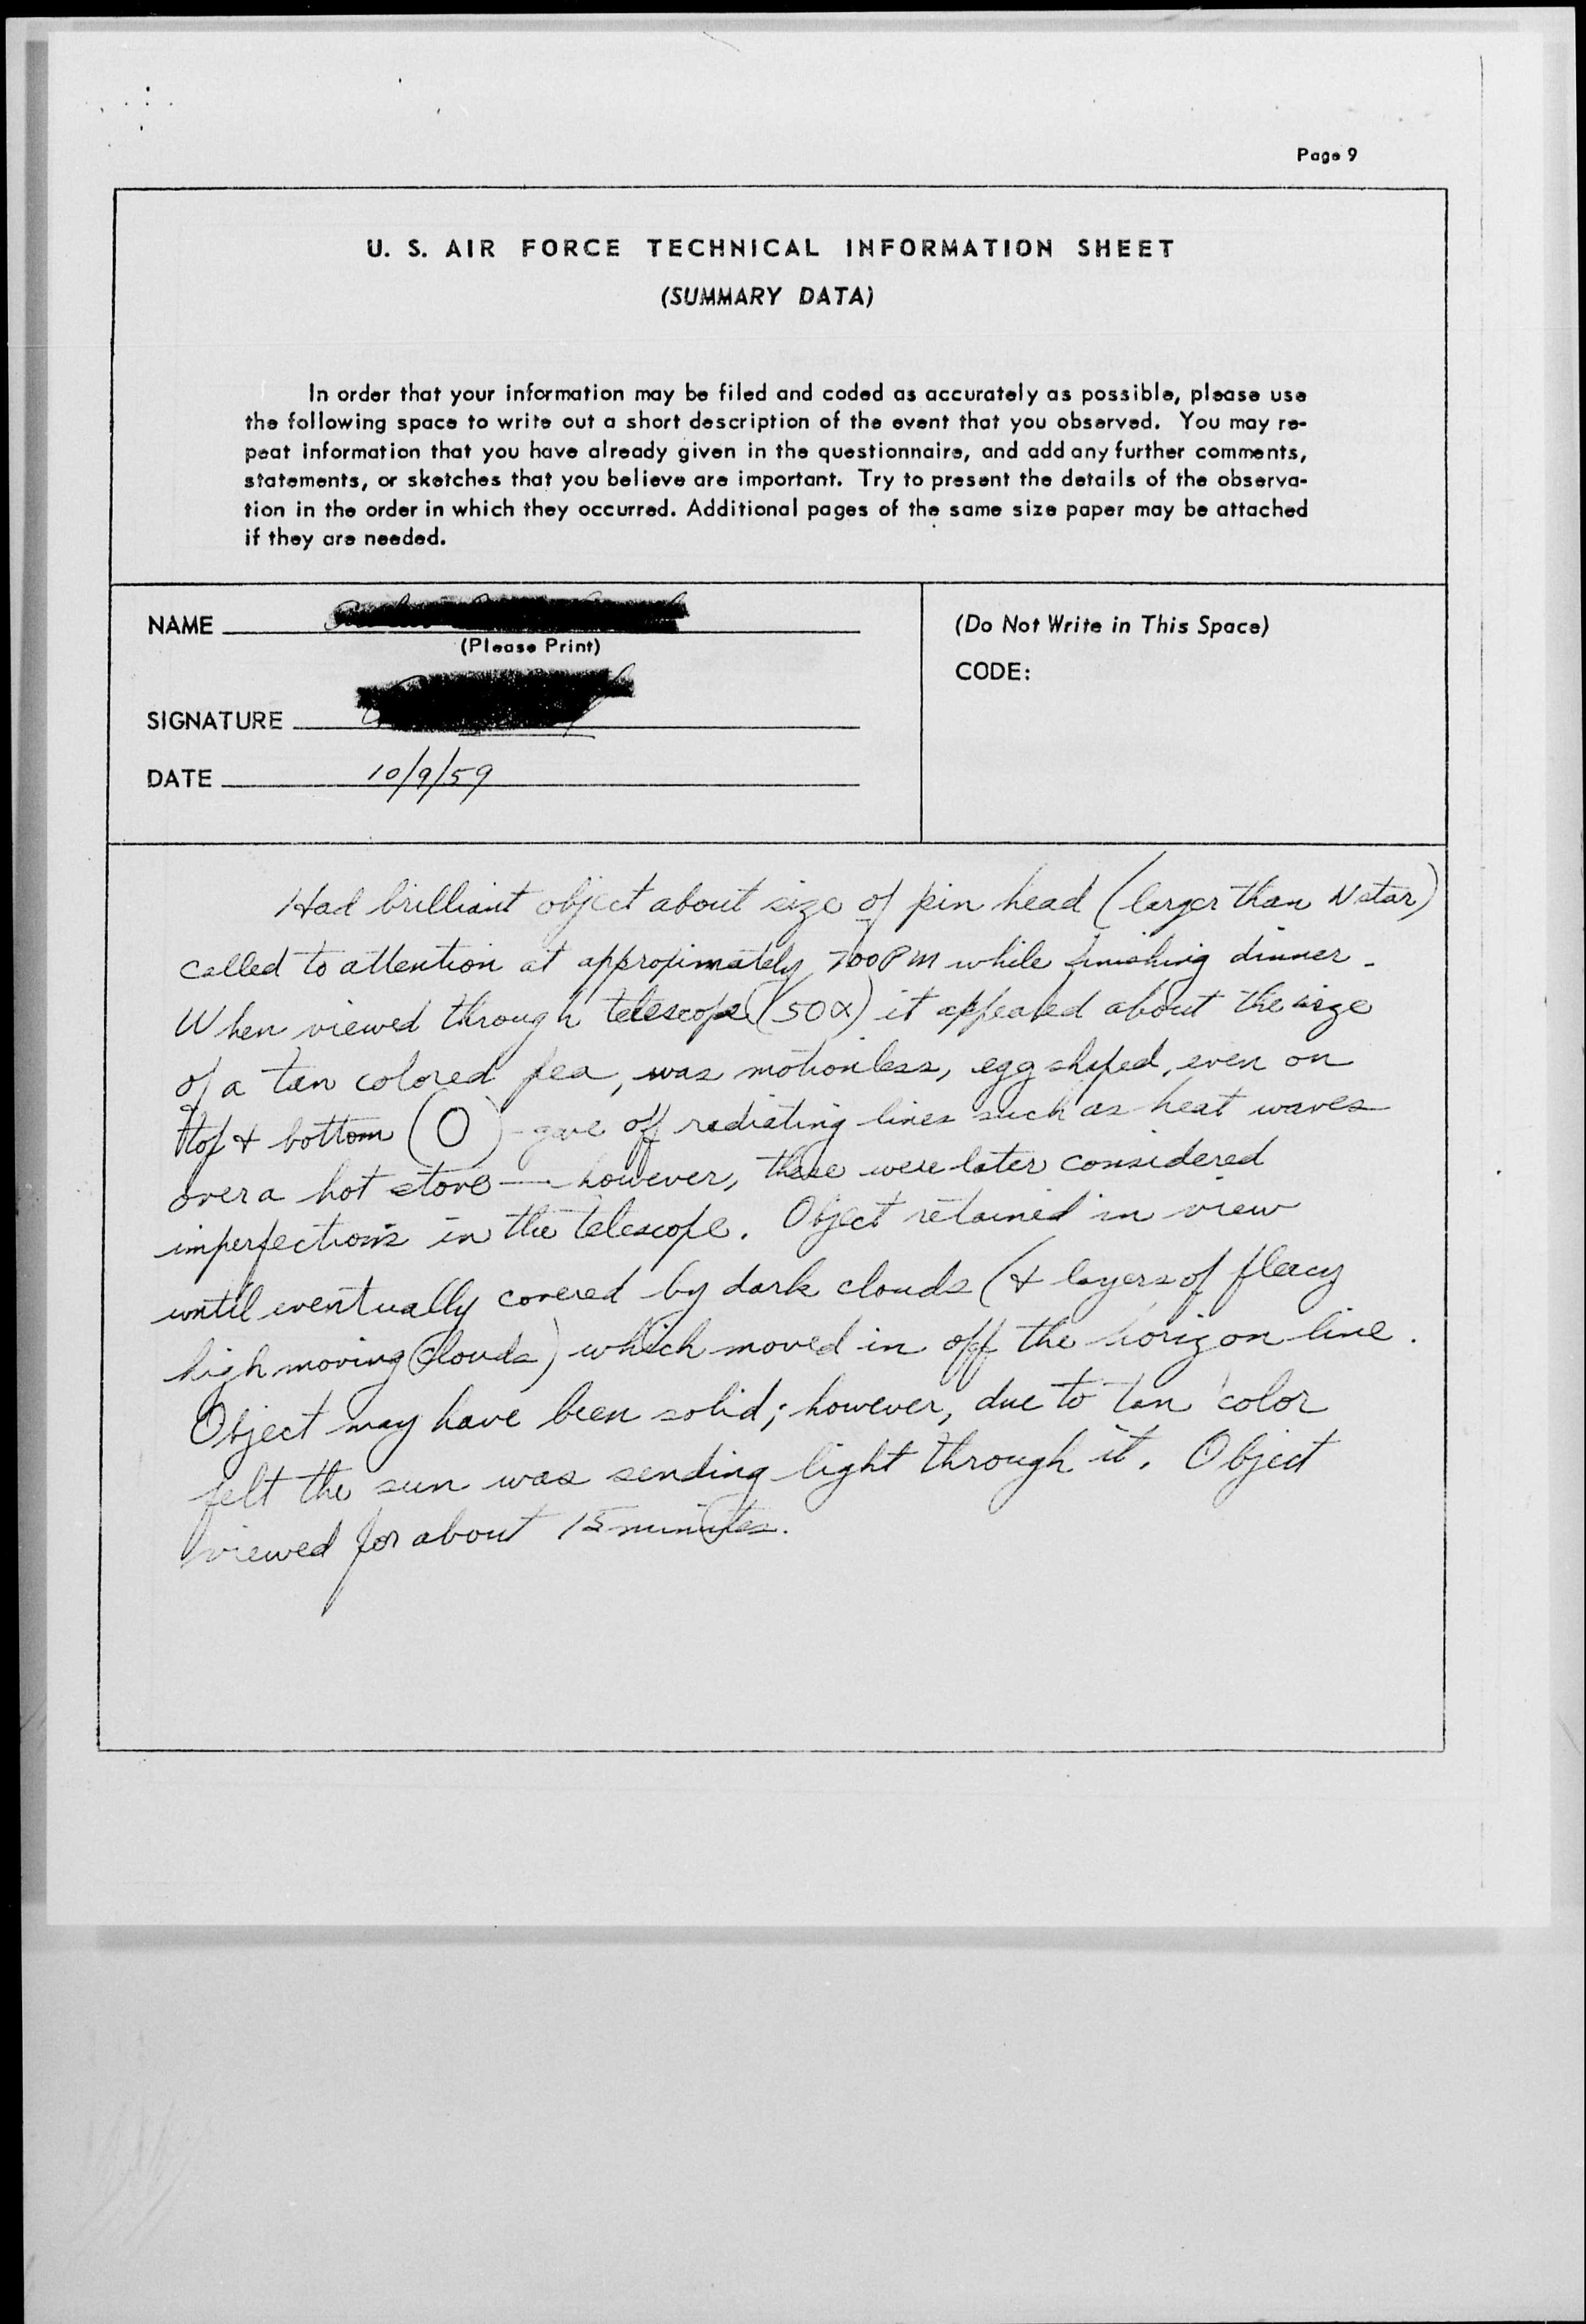 Page 9
U. S. AIR FORCE TECHNICAL INFORMATION SHEET
(SUMMARY DATA)
In order that your information may be filed and coded as accurately as possible, please use
the following space to write out a short description of the event that you observed. You may re-
peat information that you have already given in the questionnaire, and add any further comments,
statements, or sketches that you believe are important. Try to present the details of the observa-
tion in the order in which they occurred. Additional pages of the same size paper may be attached
if they are needed.
NAME
(Please Print)
SIGNATURE
DATE 10/9/59
(Do Not Write in This Space)
CODE:
Had brilliant object about size of pin head (larger than N star)
called to attention at approximately 700 PM while finishing dinner.
When viewed through telescope (50X) it appeared about the size
of a tan colored pea, was motionless, egg shaped, even on
top & bottom (O) - gave off radiating lines such as heat waves
over a hot stove — however, these were later considered
imperfections in the telescope. Object retained in view
until eventually covered by dark clouds (& layers of fleacy
high moving clouds) which moved in off the horizon line.
Object may have been solid; however, due to tan color
felt the sun was sending light through it. Object
viewed for about 15 minutes.